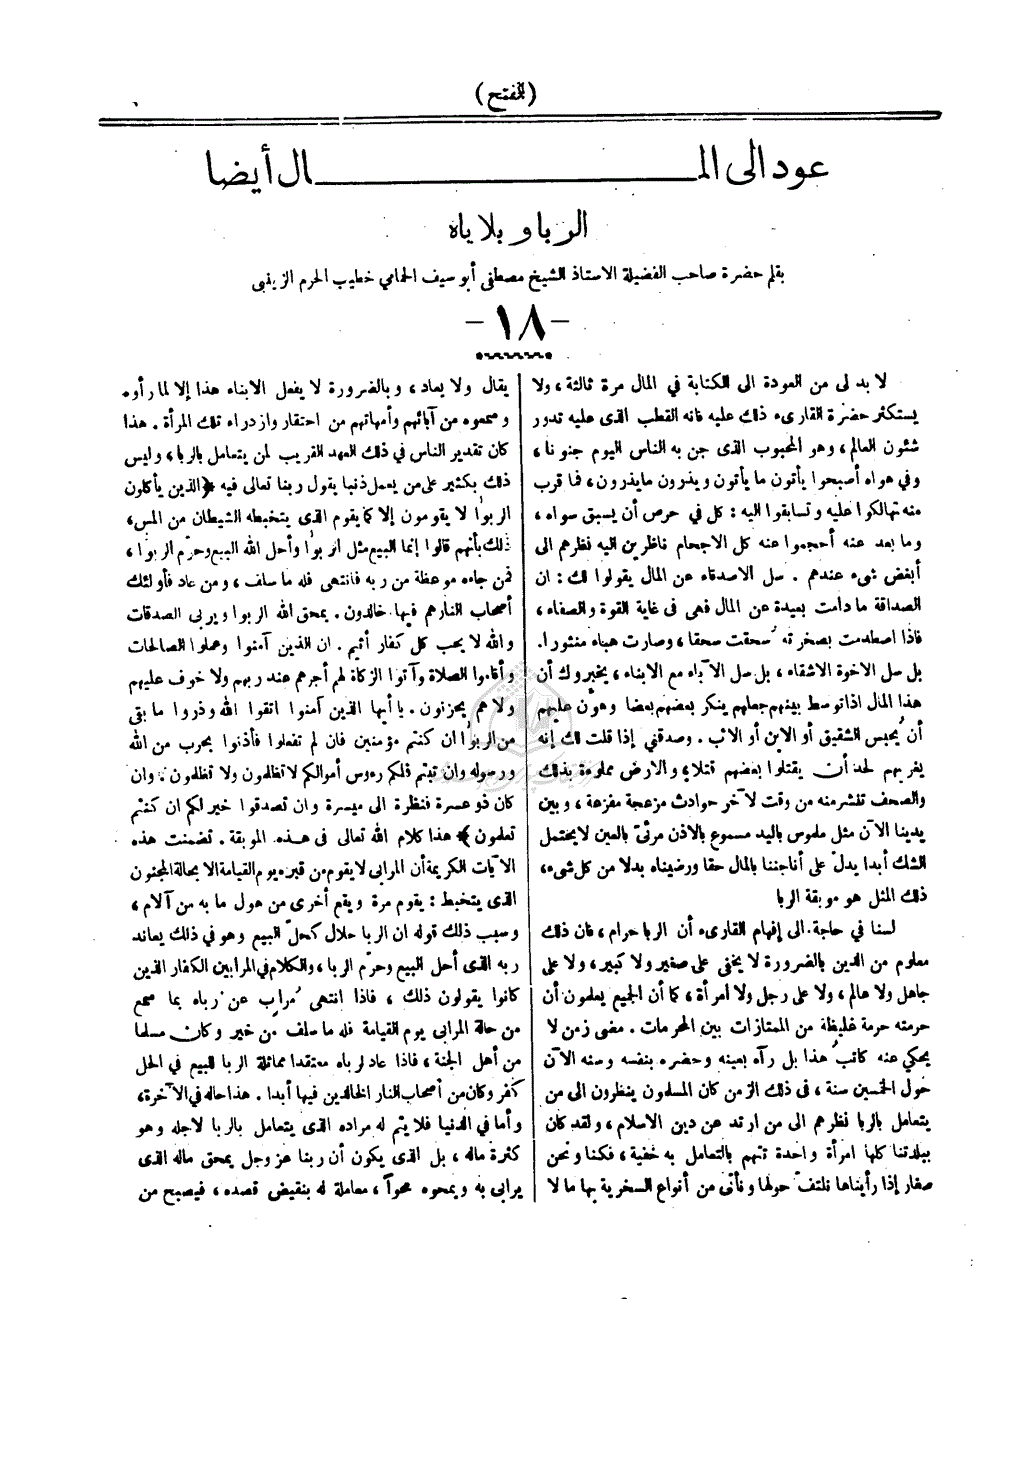 (الفتح)
عود الى المـــــــــــــــال أيضا
الربا وبلاياه
بقلم حضرة صاحب الفضيلة الاستاذ الشيخ مصطفى أبو سيف الحمامي خطيب الحرم الزينبى
- ١٨ -
لا بد لى من العودة الى الكتابة في المال مرة ثالثة ، ولا
يستكثر حضرة القارىء ذلك عليه فانه القطب الذى عليه تدور
شئون العالم ، وهو المحبوب الذى جن به الناس اليوم جنونا ،
وفي هواه أصبحوا يأتون ما يأتون ويذرون مايذرون ، فما قرب
منه تهالكوا عليه وتسابقوا اليه : كل في حرص أن يسبق سواه ،
وما بعد عنه أحجموا عنه كل الاجحام ناظرين اليه نظرهم الى
أبغض شىء عندهم . سل الاصدقاء عن المال يقولوا لك : ان
الصداقة ما دامت بعيدة عن المال فهى فى غاية القوة والصفاء ،
فاذا اصطدمت بصخرته سُحقت سحقا ، وصارت هباء منثورا .
بل سل الاخوة الاشقاء ، بل سل الآباء مع الابناء ، يخبروك أن
هذا المال اذا توسط بينهم جعلهم ينكر بعضهم بعضا وهون عليهم
أن يُحبس الشقيق أو الابن أو الاب . وصدقني إذا قلت لك إنه
يغريهم لحد أن يقتلوا بعضهم قتلا ، والارض مملوءة بذلك
والصحف تنشر منه من وقت لآخر حوادث مزعجة مفزعة ، وبين
يدينا الآن مثل ملموس باليد مسموع بالاذن مرئيّ بالعين لا يحتمل
الشك أبدا يدلّ على أنا جننا بالمال حقا ورضيناه بدلا من كل شىء ،
ذلك المثل هو موبقة الربا
لسنا في حاجة الى إفهام القارىء أن الربا حرام ، فان ذلك
معلوم من الدين بالضرورة لا يخفى على صغير ولا كبير ، ولا على
جاهل ولا عالم ، ولا على رجل ولا امرأة ، كما أن الجميع يعلمون أن
حرمته حرمة غليظة من الممتازات بين المحرمات . مضى زمن لا
يحكي عنه كاتب هذا بل رآه بعينه وحضره بنفسه وسنه الآن
حول الخمسين سنة ، فى ذلك الزمن كان المسلمون ينظرون الى من
يتعامل بالربا نظرهم الى من ارتد عن دين الاسلام ، ولقد كان
ببلدتنا كلها امرأة واحدة تتهم بالتعامل به خفية ، فكنا ونحن
صغار إذا رأيناها نلتفّ حولها ونأتى من أنواع السخرية بها ما لا
يقال ولا يعاد ، وبالضرورة لا يفعل الابناء هذا إلا لما رأوه
وسمعوه من آبائهم وأمهاتهم من احتقار وازدراء تلك المرأة . هذا
كان تقدير الناس في ذلك العهد القريب لمن يتعامل بالربا ، وليس
ذلك بكثير على من يعمل ذنبا يقول ربنا تعالى فيه ﴿الذين يأكلون
الربوا لا يقومون إلا كما يقوم الذى يتخبطه الشيطان من المس ،
ذلك بأنهم قالوا إنما البيع مثل الربوا وأحل الله البيع وحرّم الربوا ،
فمن جاءه موعظة من ربه فانتهى فله ما سلف ، ومن عاد فأولئك
أصحاب النار هم فيها خالدون . يمحق الله الربوا ويربى الصدقات
والله لا يحب كل كفار أثيم . ان الذين آمنوا وعملوا الصالحات
وأقاموا الصلاة وآتوا الزكاة لهم أجرهم عند ربهم ولا خوف عليهم
ولا هم يحزنون . يا أيها الذين آمنوا اتقوا الله وذروا ما بقى
من الربوا ان كنتم مؤمنين فان لم تفعلوا فأذنوا بحرب من الله
ورسوله وان تبتم فلكم رءوس أموالكم لا تظلمون ولا تظلمون ، وان
كان ذو عسرة فنظرة الى ميسرة وان تصدقوا خير لكم ان كنتم
تعلمون﴾ هذا كلام الله تعالى فى هذه الموبقة . تضمنت هذه
الآيات الكريمة أن المرابى لا يقوم من قبره يوم القيامة الا بحالة المجنون
الذى يتخبط : يقوم مرة ويقع أخرى من هول ما به من آلام ،
وسبب ذلك قوله ان الربا حلال كحلّ البيع وهو في ذلك يعاند
ربه الذى أحل البيع وحرّم الربا ، والكلام في المرابين الكفار الذين
كانوا يقولون ذلك ، فاذا انتهى مُرابٍ عن رباه بما سمع
من حالة المرابى يوم القيامة فله ما سلف من خير وكان مسلما
من أهل الجنة ، فاذا عاد لرباه معتقدا مماثلة الربا للبيع في الحل
كفر وكان من أصحاب النار الخالدين فيها أبدا . هذا حاله فى الآخرة ،
وأما في الدنيا فلا يتم له مراده الذى يتعامل بالربا لاجله وهو
كثرة ماله ، بل الذى يكون أن ربنا عز وجل يمحق ماله الذى
يرابى به ويمحوه محواً ، معاملة له بنقيض قصده ، فيصبح من